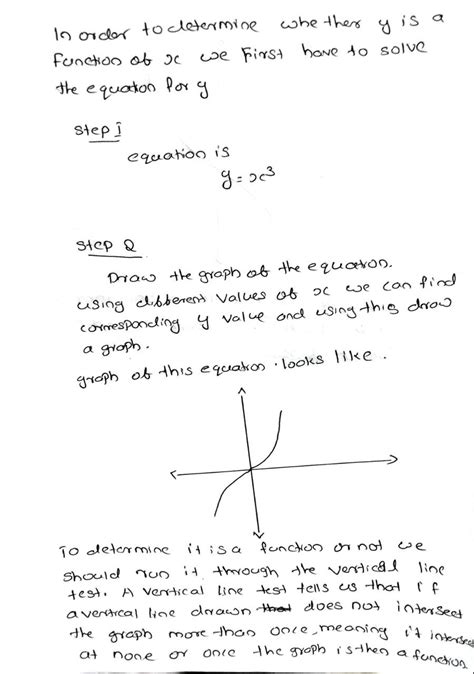 In order to determine whether y is a
function of x we First have to solve
the equation for y
step 1
equation is
y = x³
step 2
Draw the graph of the equation.
using different values of x we can find
corresponding y value and using this draw
a graph.
graph of this equation looks like.
To determine it is a function or not we
should run it through the vertical line
test. A vertical line test tells us that if
a vertical line drawn that does not intersect
the graph more than once, meaning it intersect
at none or once the graph is then a function.